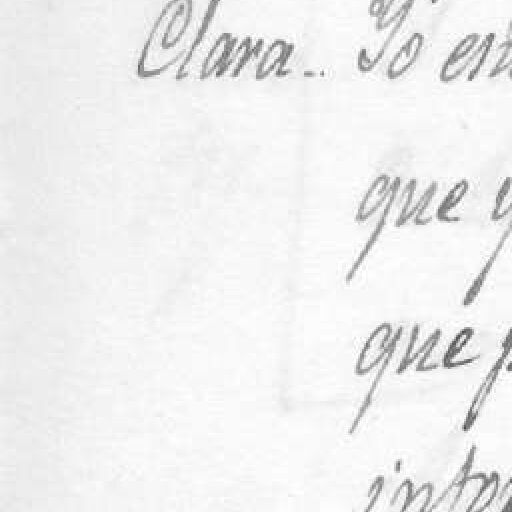 Clara.. Yo est
que y
que p
inter